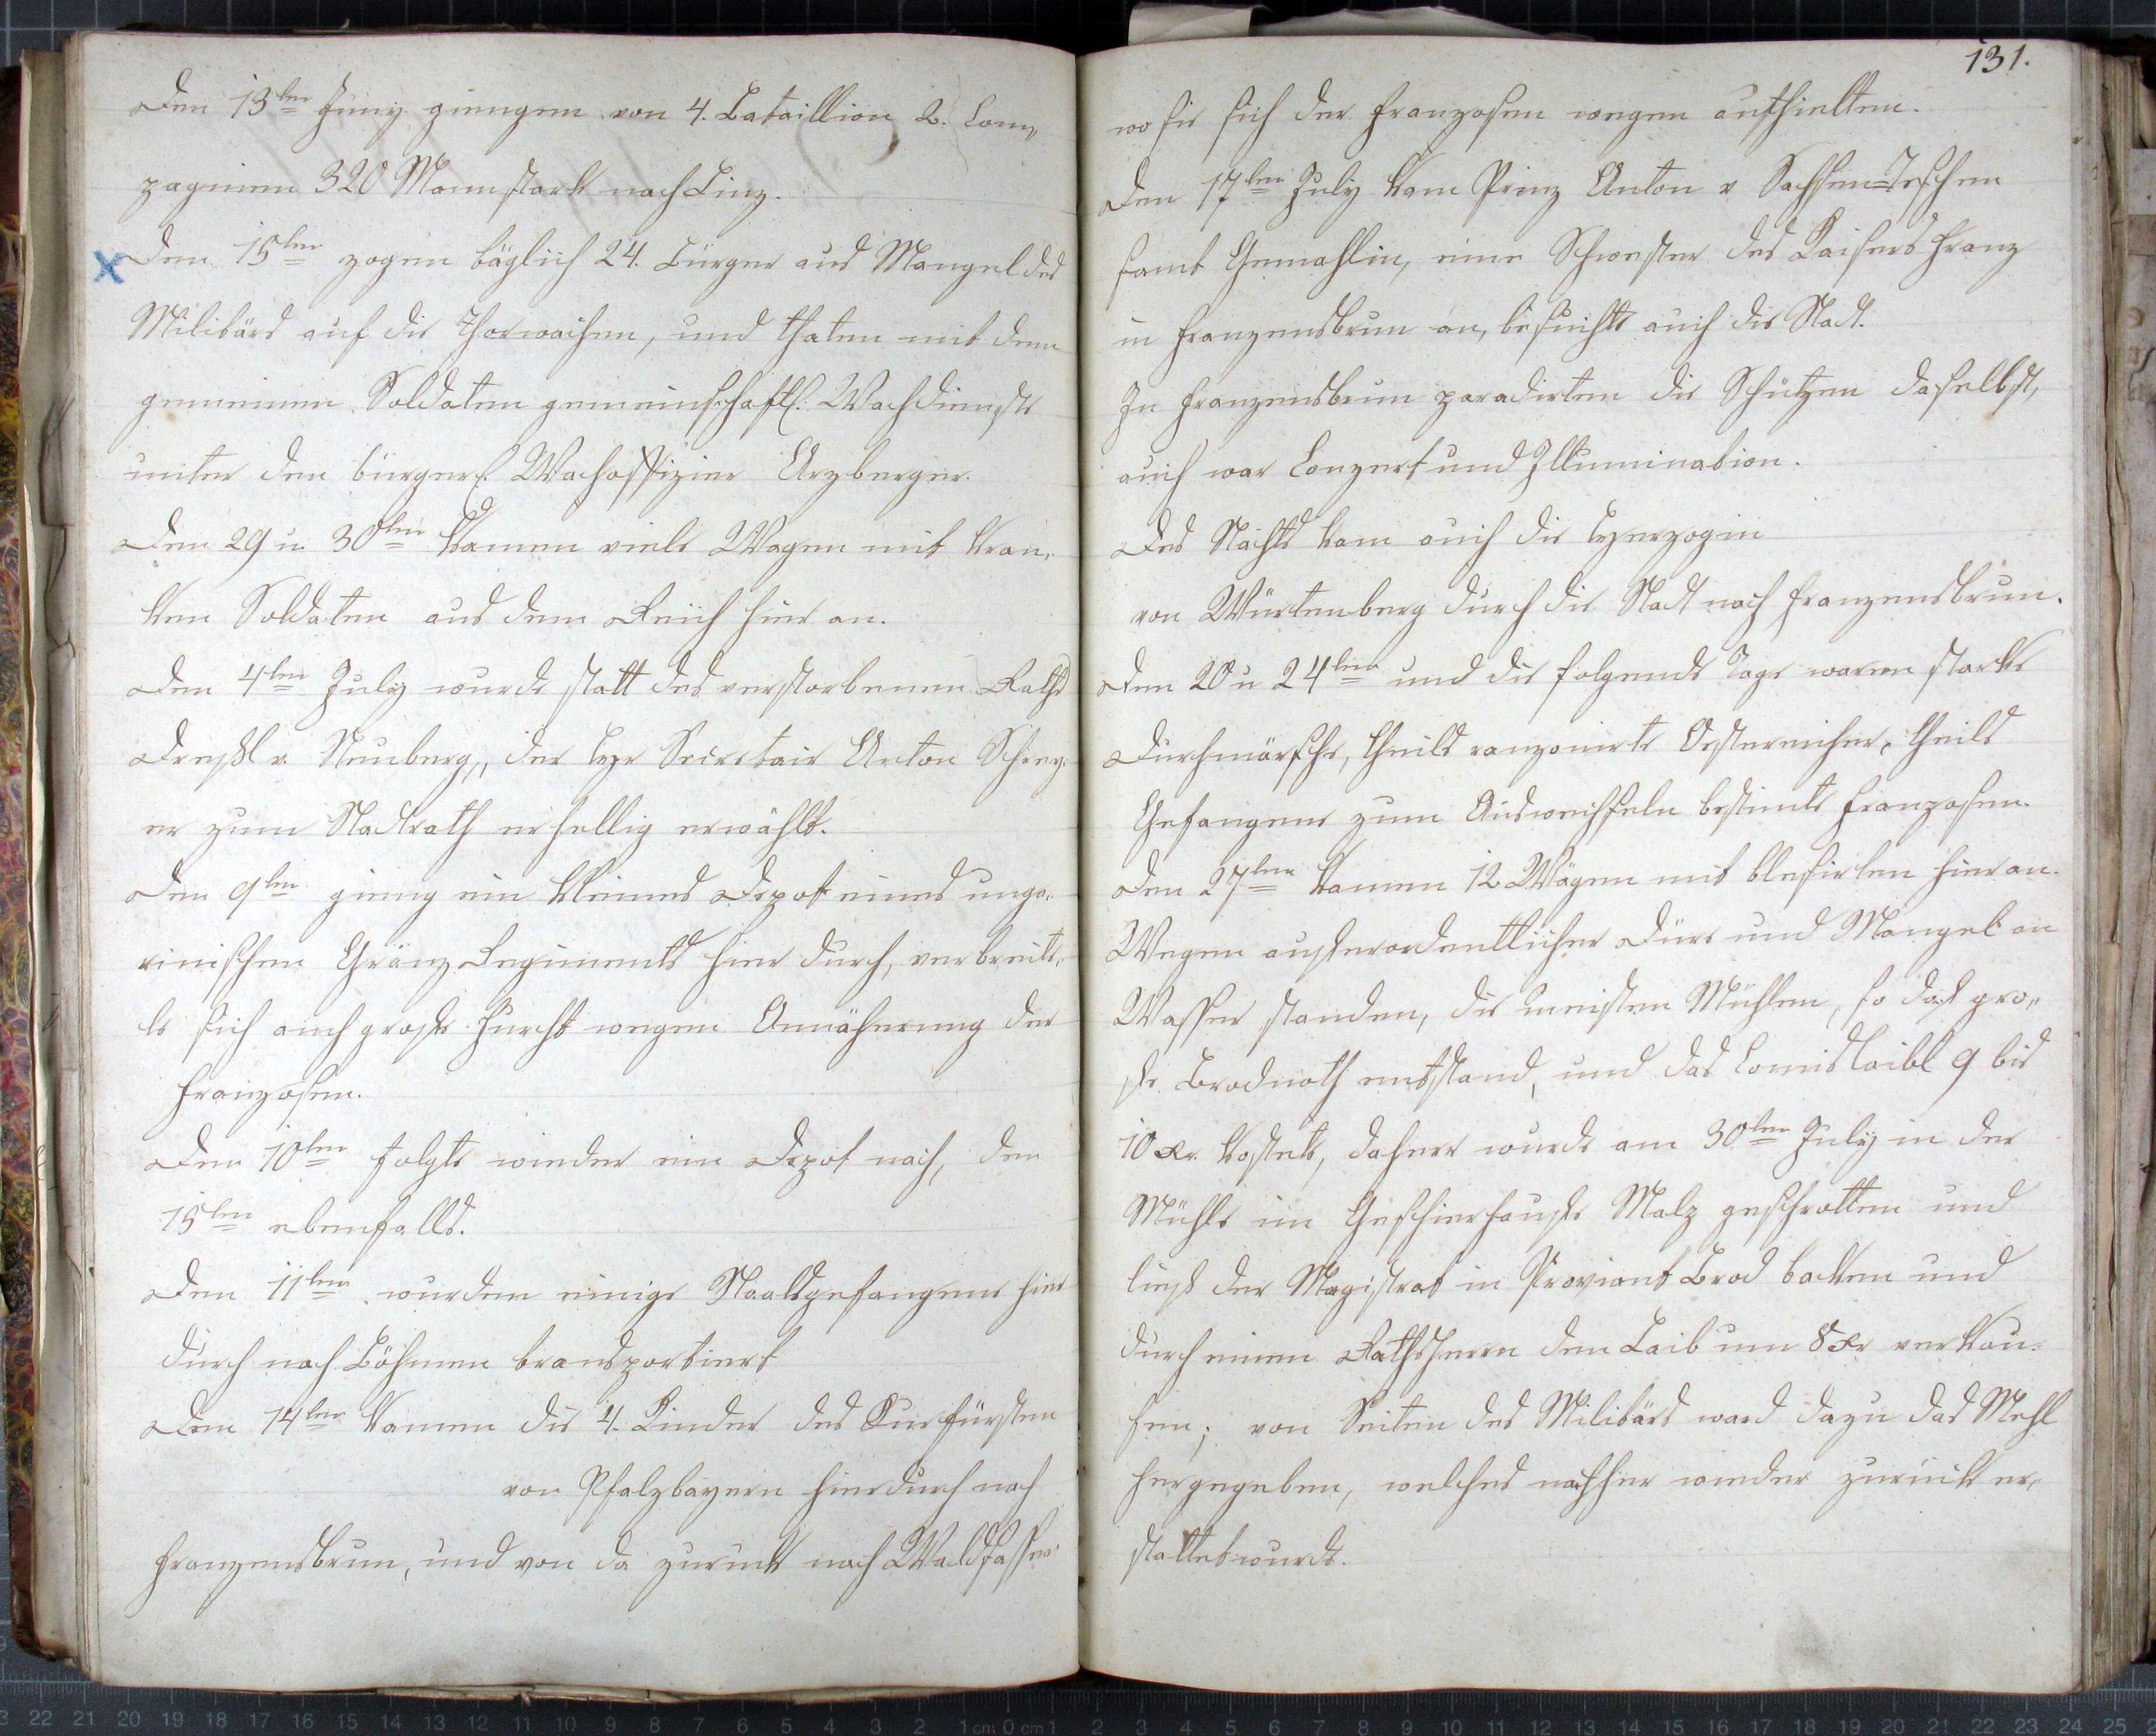 Den 13ten Juny giengen von 4. Bataillion 2. Com„
pagnien 320 Mann stark nach Linz.
Den 15ten zogen täglich 24. Bürger aus Mangel des
Militärs auf die Thorwachen, und thaten mit dem
gemeinen Soldaten gemeinschaftl. Wachdienste
unter dem bürgerl. Wachoffizier Arzberger.
Den 29 u. 30ten kamen viele Wagen mit kran„
ken Soldaten aus dem Reich hier an.
Den 4ten July wurde statt des verstorbenen Raths
v. Neuberg, der Secretair Anton Schrey„
er zum Stadtrath erwählt.
Den 9ten gieng ein kleines Depot eines unga„
rischen Gränz Regiments hier durch, verbreite„
te sich auch große Furcht wegen Annäherung der
Franzosen.
Den 10ten folgte wieder ein Depot nach, den
15ten ebenfalls.
Den 11ten wurden einige Staatsgefangene hier
durch nach Böhmen transportiert
Den 14ten kamen die 4. Kinder des Kurfürsten
von Pfalzbayern hierdurch nach
Franzensbrun, und von da zurück nach Waldsassen
131.
wo sie sich der Franzosen wegen aufhielten.
Den 17ten July kam Prinz Anton v Sachsen=Teschen
samt Gemahlin, eine Schwester des Kaisers Franz
in Franzensbrun an, besuchte auch die Stadt.
In Franzensbrun paradirten die Schützen daselbst,
auch war Conzert und Illumination.
Des Nachts kam auch die Herzogin
von Würtenberg durch die Stadt nach Franzensbrun.
Den 20 u 24ten und die folgende Tage waren starke
Durchmärsche, theils ranzonirte Oestereicher, theils
Gefangene zum Auswechseln bestimte Franzosen.
Den 27ten kamen 12 Wägen mit blesirten hier an.
Wegen außerordentlicher Dürre und Mangel an
Wasser standen, die meisten Mühlen, so daß gro„
ße Brodnoth entstand, und das Comislaibl 9 bis
10 Xr. kostete, daher wurde am 30ten July in der
Mühle im Geschierhauße Malz geschrotten und
ließ der Magistrat in Proviant Brod backen und
durch einen Rathsherrn den Laib um 8 Xr verkau„
fen; von Seiten des Militärs ward dazu das Mehl
hergegeben, welches nachher wieder zurück er„
stattet wurde.